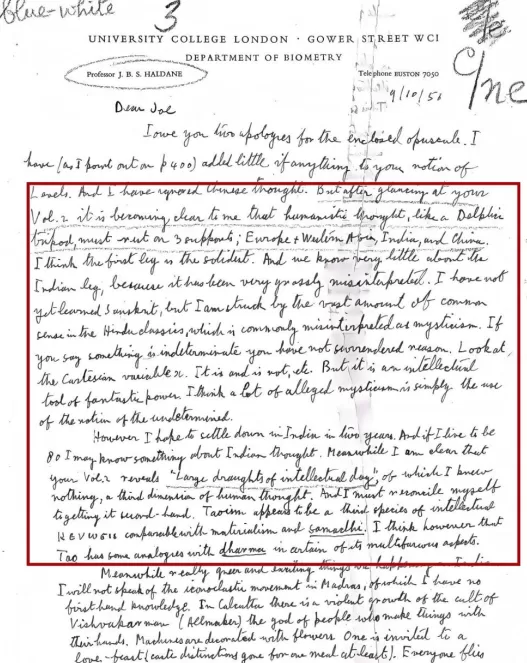 blue-white
3
C/ne
UNIVERSITY COLLEGE LONDON · GOWER STREET WC1
DEPARTMENT OF BIOMETRY
Professor J. B. S. HALDANE
Telephone EUSTON 7050
9/10/56
Dear Joe
I owe you two apologies for the enclosed opuscule. I
have (as I point out on p 400) added little if anything to your notion of
Levels. And I have ignored Chinese thought. But after glancing at your
Vol. 2 it is becoming clear to me that humanistic thought, like a Delphic
tripod, must rest on 3 supports; Europe + Western Asia, India, and China.
I think the first leg is the solidest. And we know very little about the
Indian leg, because it has been very grossly misinterpreted. I have not
yet learned Sanskrit, but I am struck by the vast amount of common
sense in the Hindu classics, which is commonly misinterpreted as mysticism. If
you say something is indeterminate you have not surrendered reason. Look at,
the Cartesian variable x. It is and is not, etc. But it is an intellectual
tool of fantastic power. I think a lot of alleged mysticism is simply the use
of the notion of the undetermined.
However I hope to settle down in India in two years. And if I live to be
80 I may know something about Indian thought. Meanwhile I am clear that
your Vol. 2 reveals "Large draughts of intellectual day", of which I knew
nothing, a third dimension of human thought. And I must reconcile myself
to getting it second-hand. Taoism appears to be a third species of intellectual
comparable with materialism and samadhi. I think however that
Tao has some analogies with dharma in certain of its multifarious aspects.
Meanwhile really queer and exciting things are happening in India
I will not speak of the iconoclastic movement in Madras, of which I have no
first hand knowledge. In Calcutta there is a violent growth of the cult of
Vishvakarman (Allmaker) the god of people who make things with
their hands. Machines are decorated with flowers. One is invited to a
love-feast (caste distinctions gone for one meal at least). Everyone flies